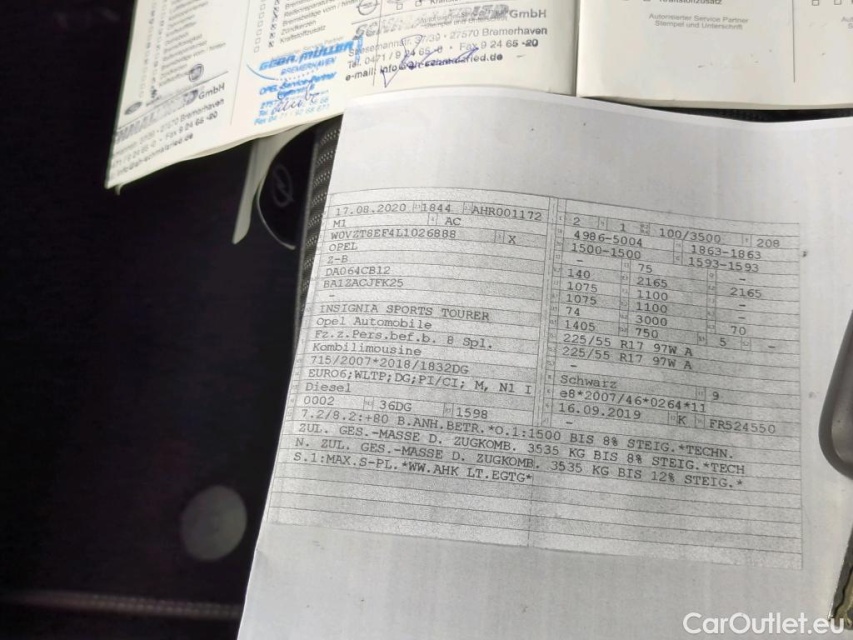 Zündkerzen
Kraftstoffzusatz
GmbH
27570 Bremerhaven
Tel. 0471 / 9 24 65 -0 • Fax 9 24 65 -20
GEBR. MÜLLER
BREMERHAVEN
OPEL Service-Partner
27570 Bremerhaven
Fax 9 24 65 -20
Autorisierter Service Partner
Stempel und Unterschrift
17.08.2020 1844 AHR001172
M1 AC
W0VZT8EF4L1026888 X
OPEL
Z-B
DA064CB12
BA1ZACJFK25
-
INSIGNIA SPORTS TOURER
Opel Automobile
Fz.z.Pers.bef.b. 8 Spl.
Kombilimousine
715/2007*2018/1832DG
EURO6;WLTP;DG;PI/CI; M, N1 I
Diesel
0002 36DG 1598
2 1 100/3500 208
4986-5004 1863-1863
1500-1500 1593-1593
- 75 -
140 2165 2165
1075 1100 -
1075 1100 -
74 3000 70
1405 750 5 -
225/55 R17 97W A
225/55 R17 97W A
-
Schwarz 9
e8*2007/46*0264*11
16.09.2019 K FR524550
-
7.2/8.2:+80 B.ANH.BETR.*O.1:1500 BIS 8% STEIG.*TECHN.
ZUL. GES.-MASSE D. ZUGKOMB. 3535 KG BIS 8% STEIG.*TECH
N. ZUL. GES.-MASSE D. ZUGKOMB. 3535 KG BIS 12% STEIG.*
S.1:MAX.S-PL.*WW.AHK LT.EGTG*
CarOutlet.eu